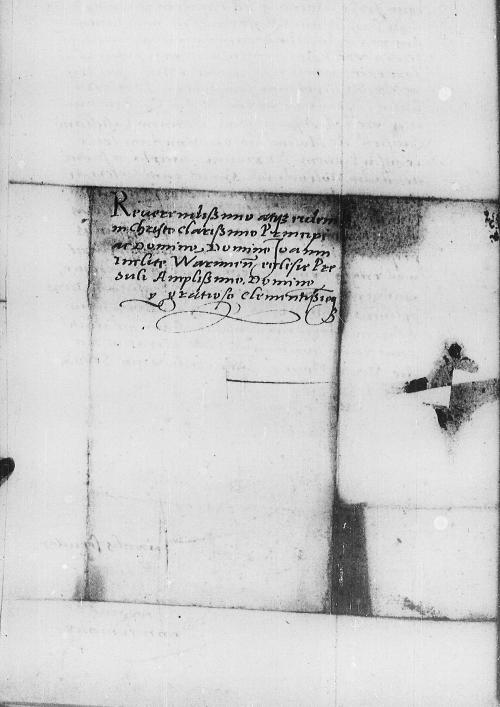 Reverendissimo atque eidem
in Christo clarissimo Principi
ac Domino, Domino Joann
Inclite Warmien̄ ecclesie Pre
suli Amplissimo, Domino
gratioso clementissimoq